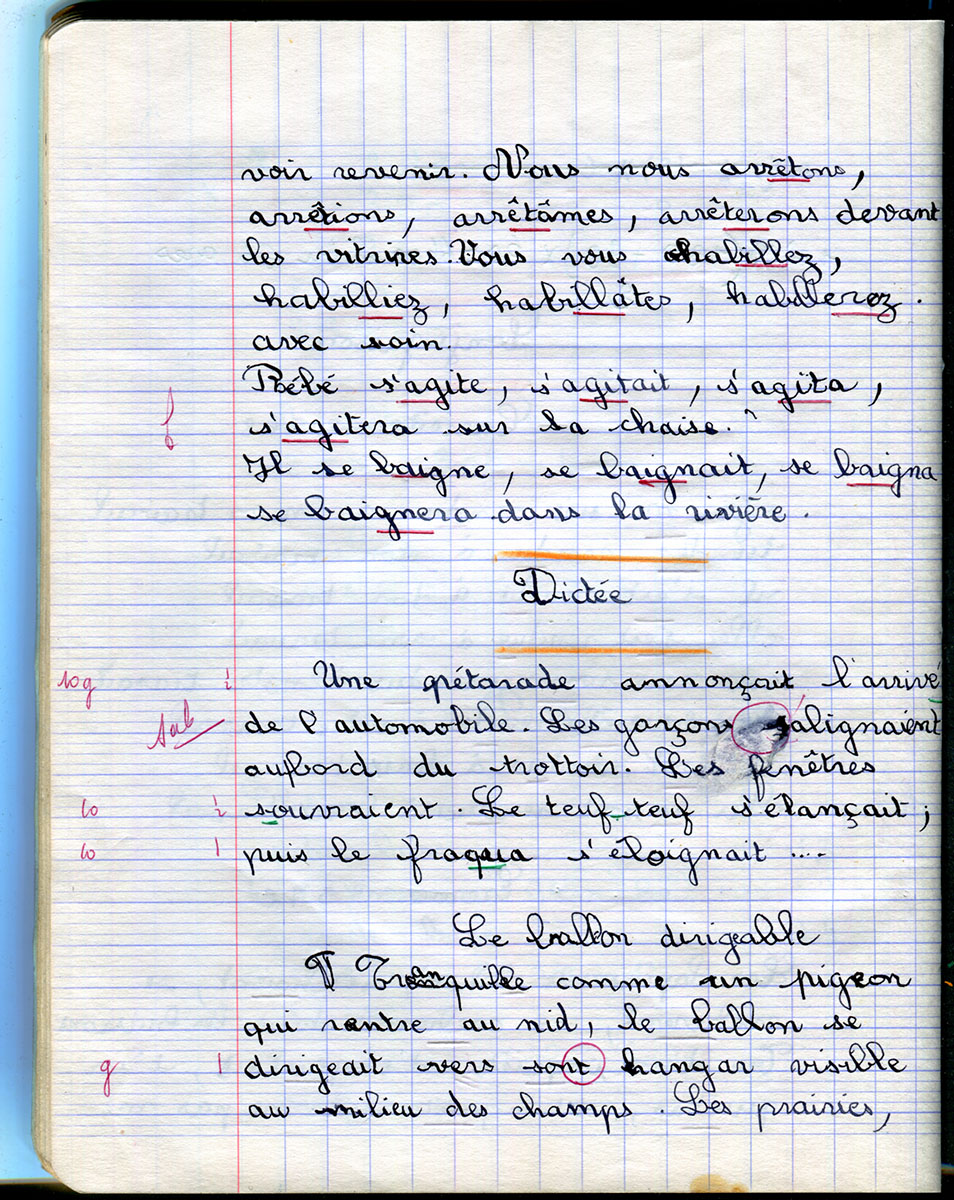 voir revenir. Nous nous arrêtons,
arrêtions, arrêtâmes, arrêterons devant
les vitrines. Vous vous habillez,
habilliez, habillâtes, habillerez.
avec soin.
Bébé s'agite, s'agitait, s'agita,
s'agitera sur sa chaise.
Il se baigne, se baignait, se baigna
se baignera dans la rivière.
Dictée
log i Une pétarade annonçait l'arrivé
sal de l'automobile. Les garçons salignaient
aubord du trottoir. Les fenêtres
lo i souvraient. Le teuf-teuf s'élançait;
lo 1 puis le fraqua s'éloignait ....
Le ballon dirigeable
Tranquille comme un pigeon
qui rentre au nid, le ballon se
g 1 dirigeait vers sont hangar visible
au milieu des champs. Les prairies,